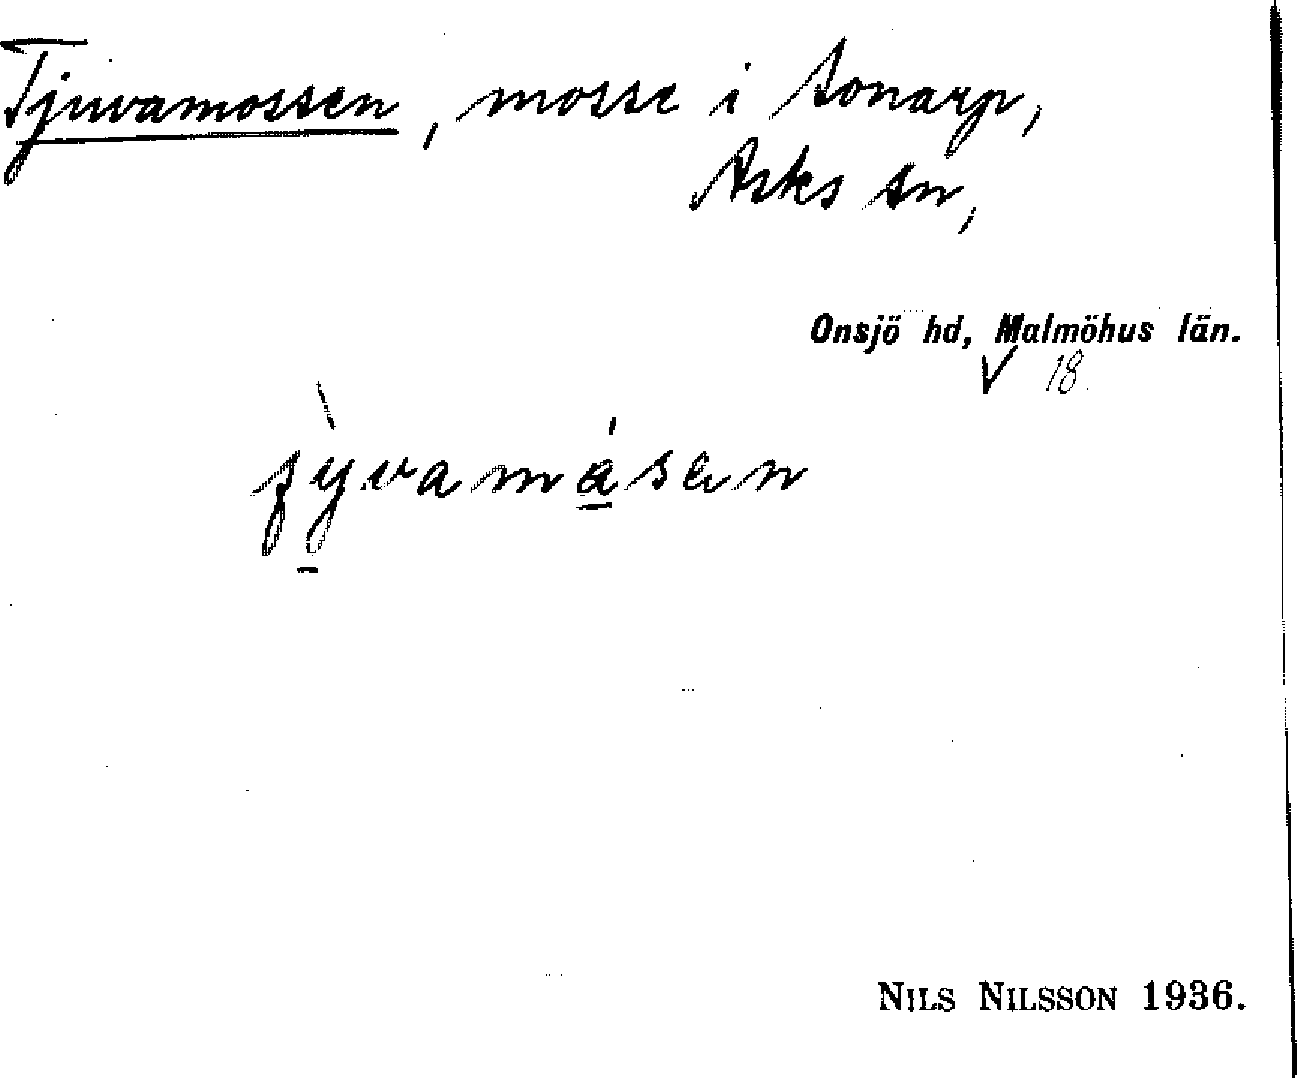 Tjuvamossen, mosse i Aonarp,
Asks sn,
Onsjö hd, Malmöhus län.
V 18.
NILS NILSSON 1936.